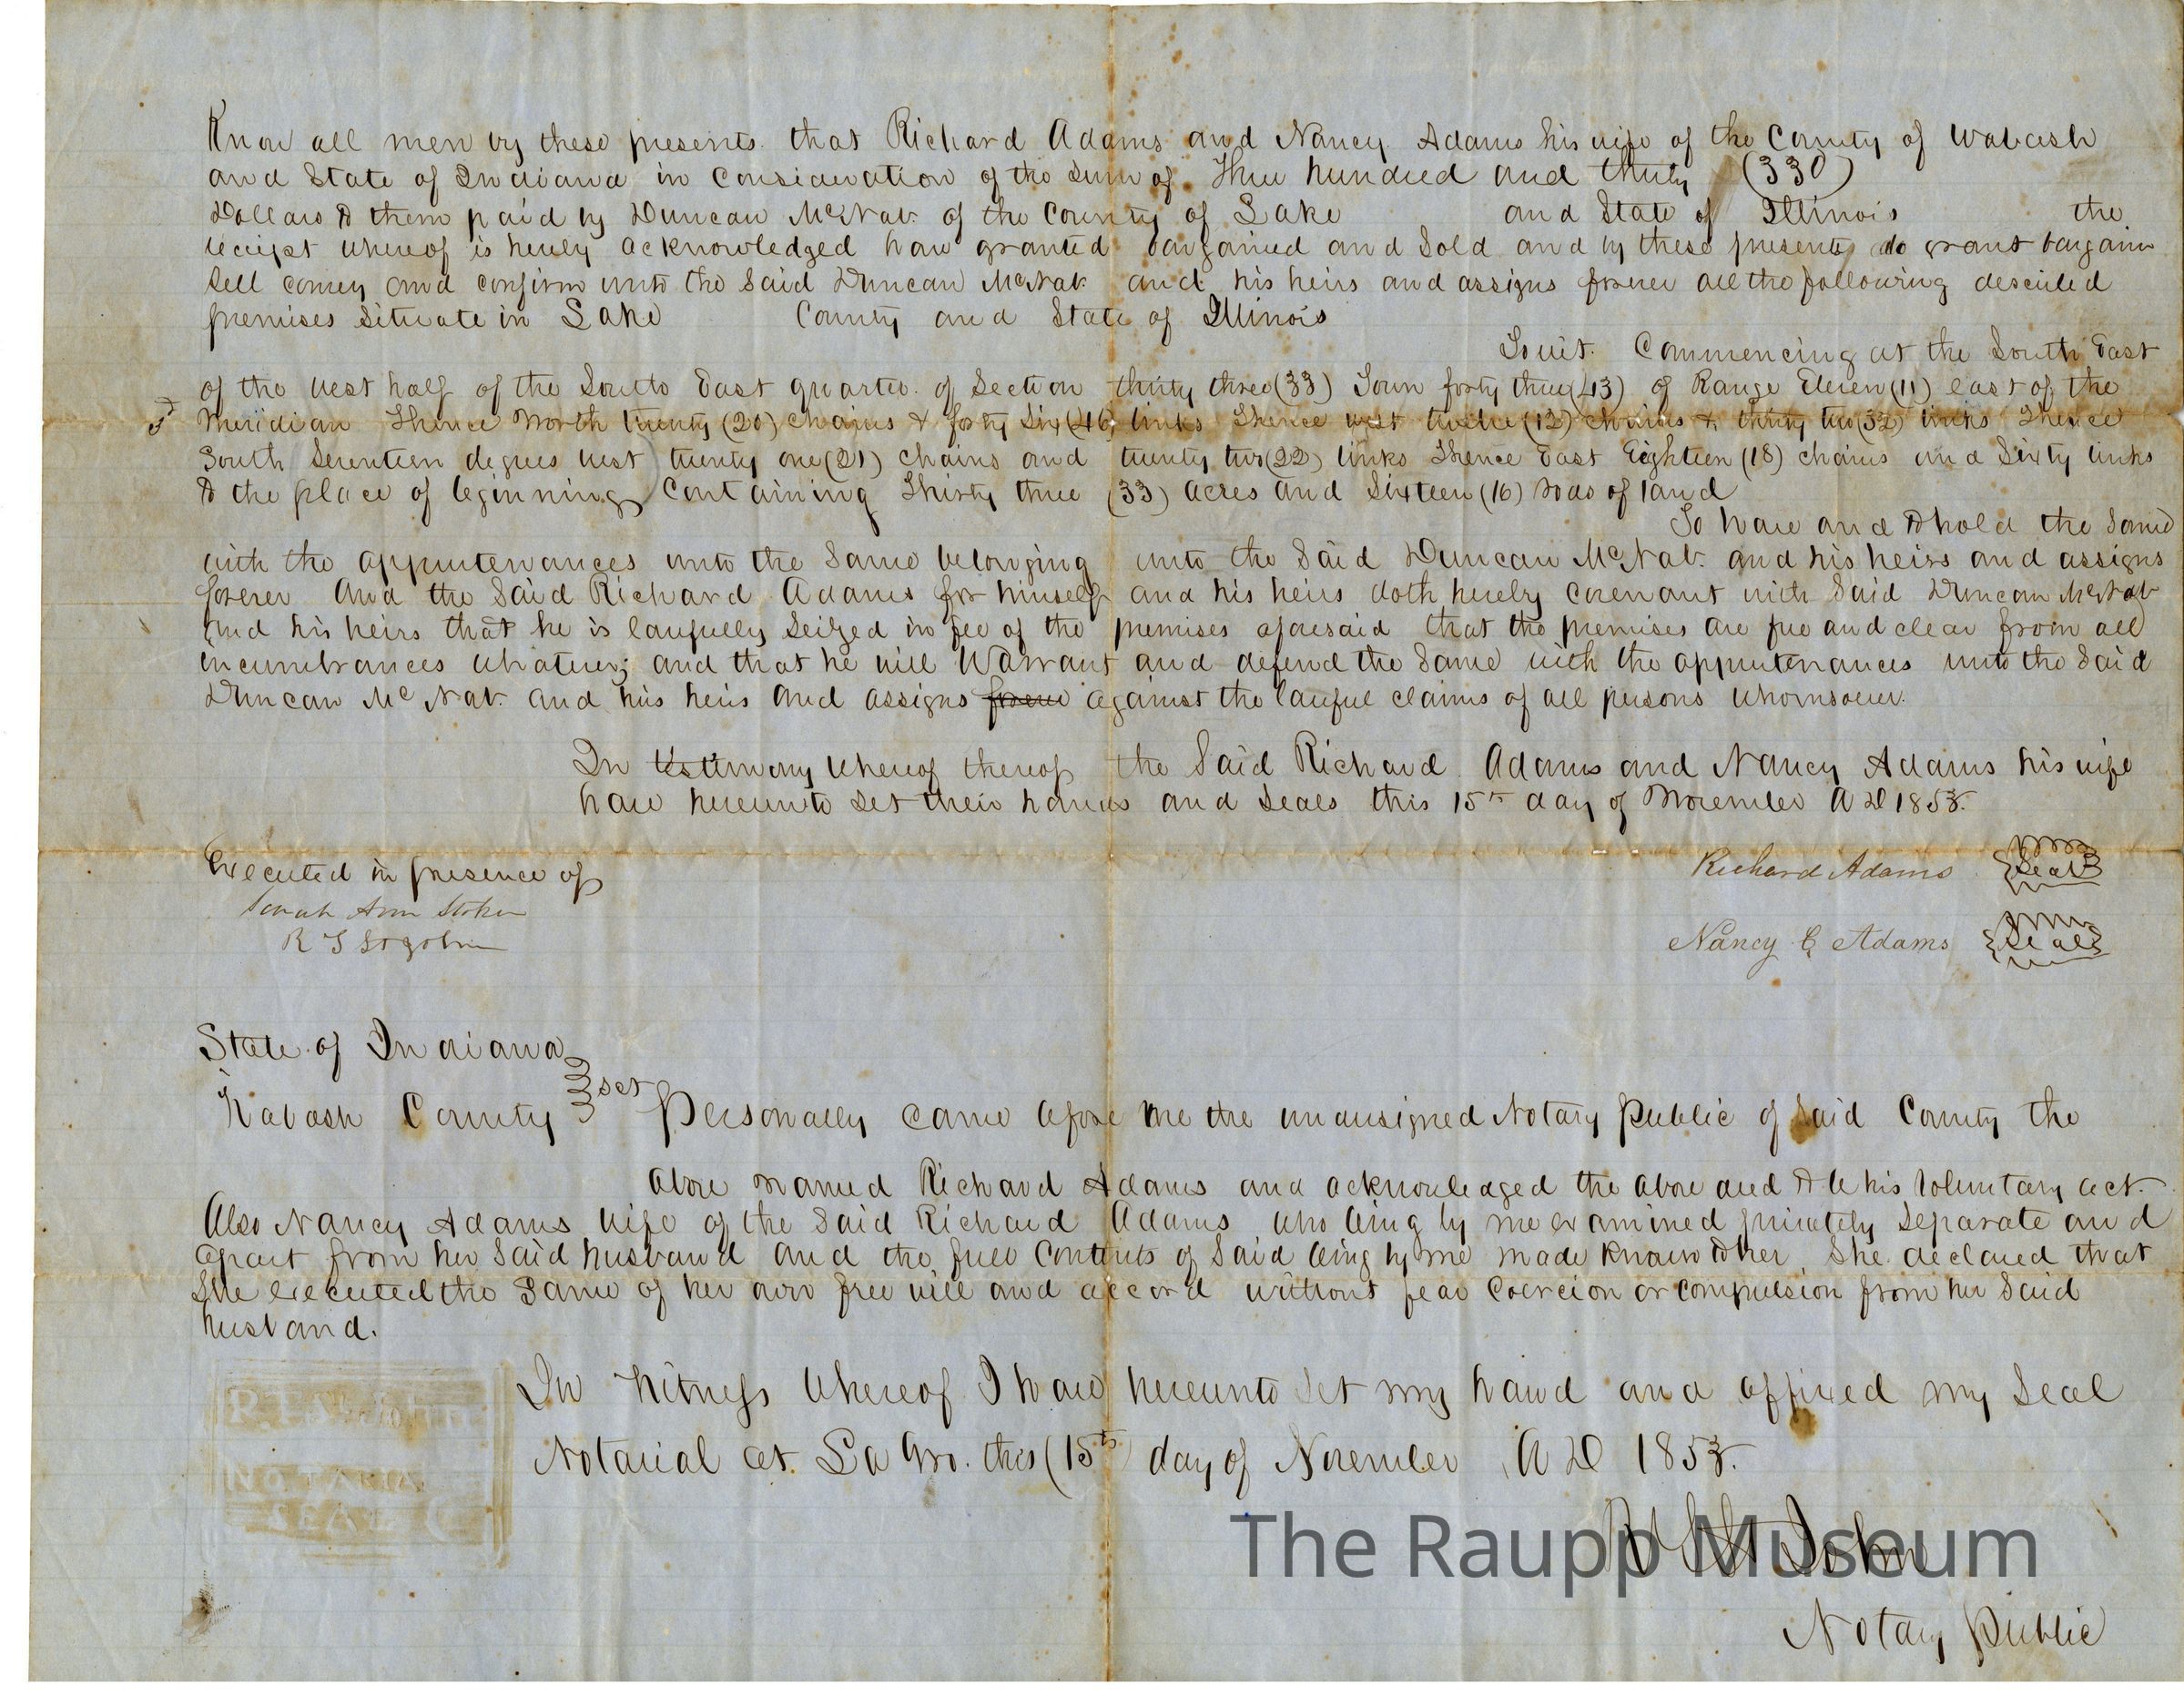 Know all men by these presents that Richard Adams and Nancy Adams his wife of the County of Wabash
and State of Indiana in consideration of the Sum of Three hundred and thirty (330)
Dollars to them paid by Duncan McNab of the County of Lake and State of Illinois the
receipt whereof is hereby acknowledged have granted bargained and Sold and by these presents do grant bargain
Sell convey and confirm unto the Said Duncan McNab and his heirs and assigns forever all the following described
premises Situate in Lake County and State of Illinois
Towit. Commencing at the South East
of the west half of the South East quarter of Section thirty three (33) Town forty three (43) of Range Eleven (11) east of the
3d Meridian Thence North twenty (20) chains & forty Six (46) links Thence west twelve (12) chains & thirty two (32) links Thence
South Seventeen degrees west twenty one (21) chains and twenty two (22) links Thence East Eighteen (18) chains and Sixty links
to the place of beginning Containing Thirty three (33) acres and Sixteen (16) rods of land
To have and to hold the Same
with the appurtenances unto the Same belonging unto the Said Duncan McNab and his heirs and assigns
forever And the Said Richard Adams for himself and his heirs doth hereby covenant with Said Duncan McNab
and his heirs that he is lawfully Seized in fee of the premises aforesaid that the premises are free and clear from all
incumbrances whatever; and that he will Warrant and defend the Same with the appurtenances unto the Said
Duncan McNab and his heirs and assigns forever against the lawful claims of all persons whomsoever.
In testimony whereof thereof the Said Richard Adams and Nancy Adams his wife
have hereunto Set their hands and Seals this 15th day of November A D 1853.
Executed in presence of
Richard Adams Seal
Sarah Ann
Nancy C Adams Seal
R T St John
State of Indiana
Wabash County sct Personally came before me the undersigned Notary Public of Said County the
above named Richard Adams and acknowledged the above deed to be his Voluntary act.
Also Nancy Adams wife of the Said Richard Adams who being by me examined privately Separate and
apart from her Said husband and the full Contents of Said being by me made Known to her, She declared that
She executed the Same of her own free will and accord without fear Coercion or compulsion from her Said
husband.
In Witness Whereof I have hereunto Set my hand and affixed my Seal
Notarial at La Gro. this (15th) day of November A D 1853.
NOTARIAL
SEAL
R T St John
Notary Public
The Raupp Museum